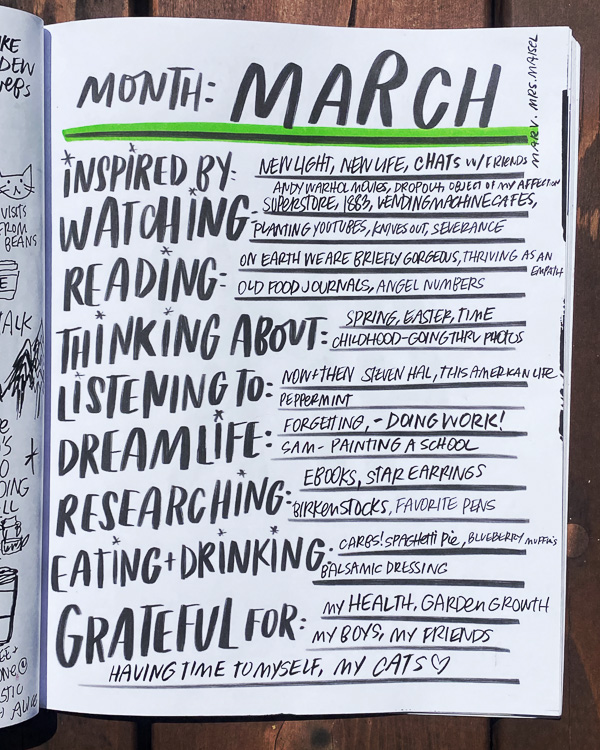 MONTH: MARCH
MARV. MRS. MAISEL
INSPIRED BY: NEW LIGHT, NEW LIFE, CHATS W/ FRIENDS
ANDY WARHOL MOVIES, DROPOUT, OBJECT OF MY AFFECTION
WATCHING: SUPERSTORE, 1883, VENDING MACHINE CAFES,
PLANTING YOUTUBES, KNIVES OUT, SEVERANCE
READING: ON EARTH WE ARE BRIEFLY GORGEOUS, THRIVING AS AN
EMPATH
OLD FOOD JOURNALS, ANGEL NUMBERS
THINKING ABOUT: SPRING, EASTER, TIME
CHILDHOOD-GOING THRU PHOTOS
LISTENING TO: NOW + THEN STEVEN HAL, THIS AMERICAN LIFE
PEPPERMINT
DREAM LIFE: FORGETTING, - DOING WORK!
SAM - PAINTING A SCHOOL
RESEARCHING: EBOOKS, STAR EARRINGS
BIRKENSTOCKS, FAVORITE PENS
EATING + DRINKING: CARBS! SPAGHETTI PIE, BLUEBERRY MUFFINS
BALSAMIC DRESSING
GRATEFUL FOR: MY HEALTH, GARDEN GROWTH
MY BOYS, MY FRIENDS
HAVING TIME TO MYSELF, MY CATS ♡
VISITS
FROM
BEANS